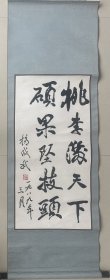 桃李满天下
硕果坠枝头
一九八九年
三月